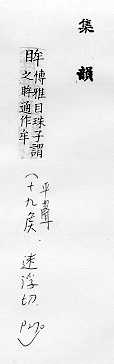 集韻
眸博雅目珠子謂
之眸通作牟
(平聲
十九侯.迷浮切.P270)